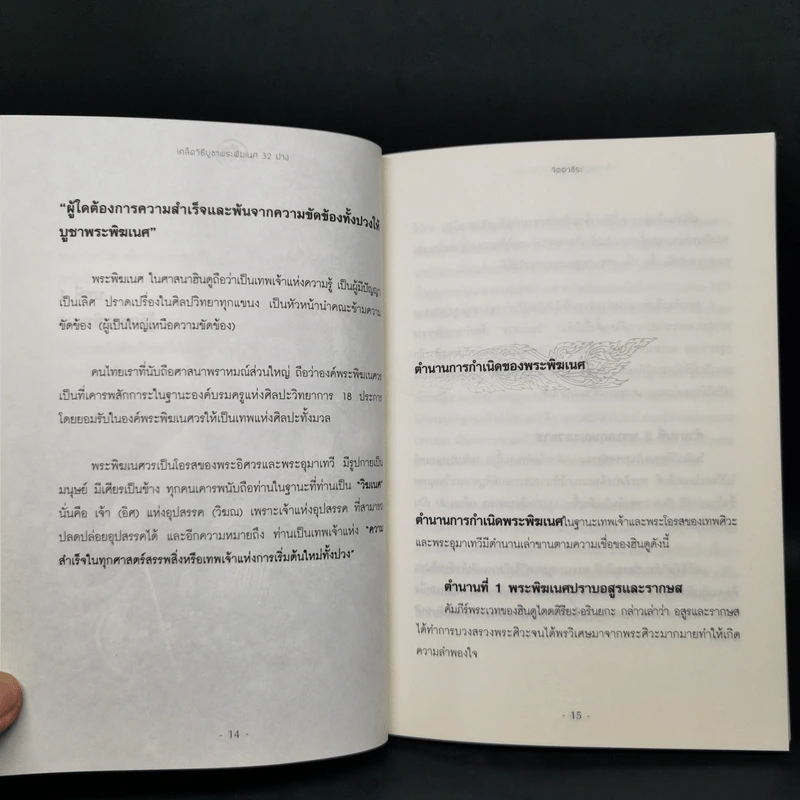 เคล็ดวิธีบูชาพระพิฆเนศ 32 ปาง
"ผู้ใดต้องการความสำเร็จและพ้นจากความขัดข้องทั้งปวงให้
บูชาพระพิฆเนศ"
พระพิฆเนศ ในศาสนาฮินดูถือว่าเป็นเทพเจ้าแห่งความรู้ เป็นผู้มีปัญญา
เป็นเลิศ ปราดเปรื่องในศิลปวิทยาทุกแขนง เป็นหัวหน้านำคณะข้ามความ
ขัดข้อง (ผู้เป็นใหญ่เหนือความขัดข้อง)
คนไทยเราที่นับถือศาสนาพราหมณ์ส่วนใหญ่ ถือว่าองค์พระพิฆเนศวร
เป็นที่เคารพสักการะในฐานะองค์บรมครูแห่งศิลปะวิทยาการ 18 ประการ
โดยยอมรับในองค์พระพิฆเนศวรให้เป็นเทพแห่งศิลปะทั้งมวล
พระพิฆเนศวรเป็นโอรสของพระอิศวรและพระอุมาเทวี มีรูปกายเป็น
มนุษย์ มีเศียรเป็นช้าง ทุกคนเคารพนับถือท่านในฐานะที่ท่านเป็น "วิฆเนศ"
นั่นคือ เจ้า (อิศ) แห่งอุปสรรค (วิฆณ) เพราะเจ้าแห่งอุปสรรค ที่สามารถ
ปลดปล่อยอุปสรรคได้ และอีกความหมายถึง ท่านเป็นเทพเจ้าแห่ง "ความ
สำเร็จในทุกศาสตร์สรรพสิ่งหรือเทพเจ้าแห่งการเริ่มต้นใหม่ทั้งปวง"
- 14 -
จิตตวชิระ
ตำนานการกำเนิดของพระพิฆเนศ
ตำนานการกำเนิดพระพิฆเนศในฐานะเทพเจ้าและพระโอรสของเทพศิวะ
และพระอุมาเทวีมีตำนานเล่าขานตามความเชื่อของฮินดูดังนี้
ตำนานที่ 1 พระพิฆเนศปราบอสูรและรากษส
คัมภีร์พระเวทของฮินดูไตตติรียะ-อรินยกะ กล่าวเล่าว่า อสูรและรากษส
ได้ทำการบวงสรวงพระศิวะจนได้พรวิเศษมาจากพระศิวะมากมายทำให้เกิด
ความลำพองใจ
- 15 -